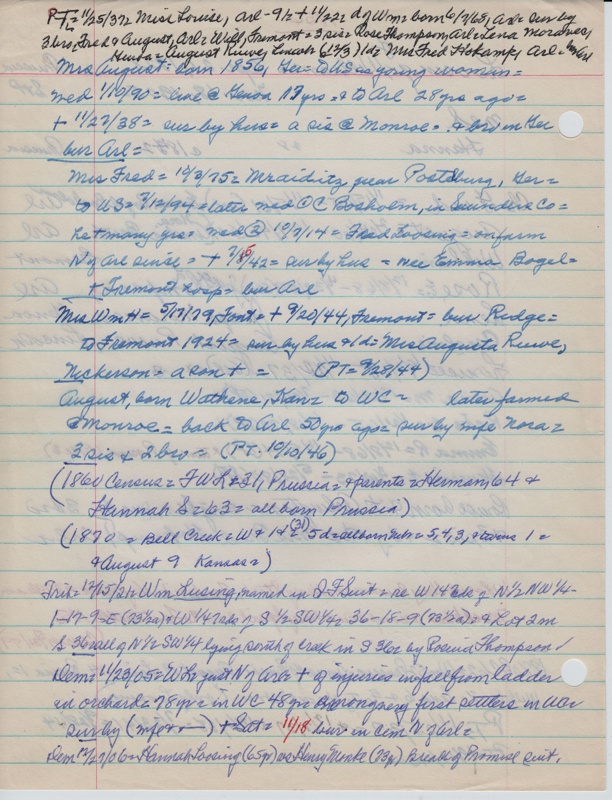 PT = 11/25/37 = Miss Louise, Arl - 9 1/2 + 11/22 = d of Wm = born 6/7/65, Arl = sur by
3 bro, Fred & August, Arl = Will, Fremont = 3 sis = Rose Thompson, Arl = Lena
August Ruwe, Lincoln (1/3) (d = Mrs Fred Hokamp, Arl =
Mrs August = born 1856, Ger = to US as young woman =
md 1/10/90 = live @ Genoa 17 yrs = & to Arl 28 yrs ago =
+ 11/27/38 = sur by hus = a sis @ Monroe = & bro in Ger
bur Arl =
Mrs Fred = 10/2/75 = near Postsburg, Ger =
to US = 7/12/94 = later md @ C Bosholm, in Saunders Co =
he + many yrs = md 2) 10/7/14 = Fred Loosing = on farm
N of Arl since = + 7/15/42 = sur by hus = nee Emma Bogel =
+ Fremont hosp = bur Arl
Mrs Wm H = 5/17/79, Font = + 9/20/44, Fremont = bur Ridge =
to Fremont 1924 = sur by hus & 1 d = Mrs Augusta Ruwe,
Nickerson = a son + = (PT = 9/28/44)
August, born Wathene, Kan = to WC = later farmed
@ Monroe = back to Arl 50 yrs ago = sur by wife Nora =
3 sis & 2 bro = (PT. 10/10/46)
(1860 Census = F W L = 31, Prussia = & parents = Herman, 64 &
Hannah S = 63 = all born Prussia)
(1870 = Bell Creek = W & 1 H (31) = 5 d = all born Neb = 5, 4, 3, & twins 1 =
& August 9 Kansas =)
Trib = 12/15/21 = Wm Lusing, named in Q T Suit = re W 14 2/3 a of N 1/2 NW 1/4 -
1-17-9-E (23 1/2 a) & W 1/4 of S 1/2 SW 1/4 36-18-9 (23 1/2 a) = & Lot 2 in
S 36 = all of N 1/2 SW 1/4 lying south of creek in S 36 = by Rosina Thompson
Dem = 11/23/05 = W L just N of Arl = + of injuries in fall from ladder
in orchard = 78 yr = in WC 48 yr = among very first settlers in WC =
sur by (wife + —) + Sat = 11/18 bur in cem N of Arl =
Dem 12/27/06 = Hannah Loosing (65 yr) vs Henry Monke (73 yr) Breach of Promise suit.